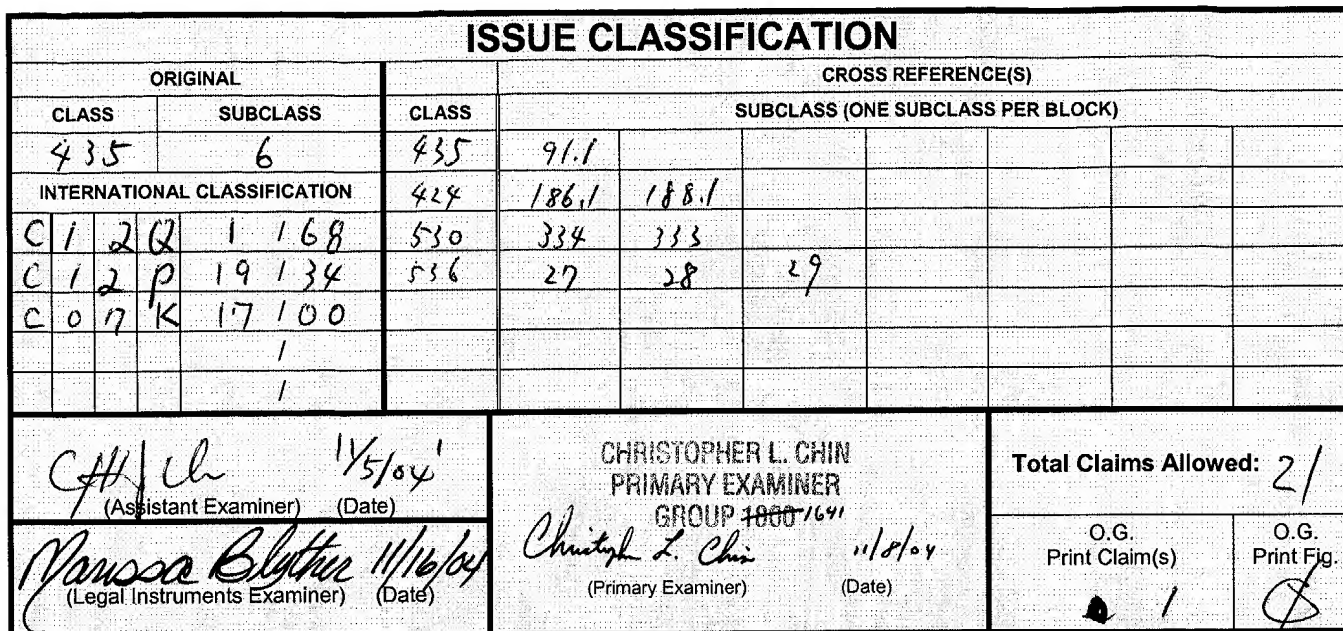 ISSUE CLASSIFICATION
ORIGINAL CROSS REFERENCE(S)
CLASS SUBCLASS CLASS SUBCLASS (ONE SUBCLASS PER BLOCK)
435 6 435 91.1
INTERNATIONAL CLASSIFICATION 424 186.1 188.1
C 1 2 Q 1 / 68 530 334 333
C 1 2 P 19 / 34 536 27 28 29
C 0 7 K 17 / 00
/
/
11/5/04
(Assistant Examiner) (Date)
Marissa Blyther 11/16/04
(Legal Instruments Examiner) (Date)
CHRISTOPHER L. CHIN
PRIMARY EXAMINER
GROUP 1800 1641
Christopher L. Chin 11/8/04
(Primary Examiner) (Date)
Total Claims Allowed: 21
O.G.
Print Claim(s)
1
O.G.
Print Fig.